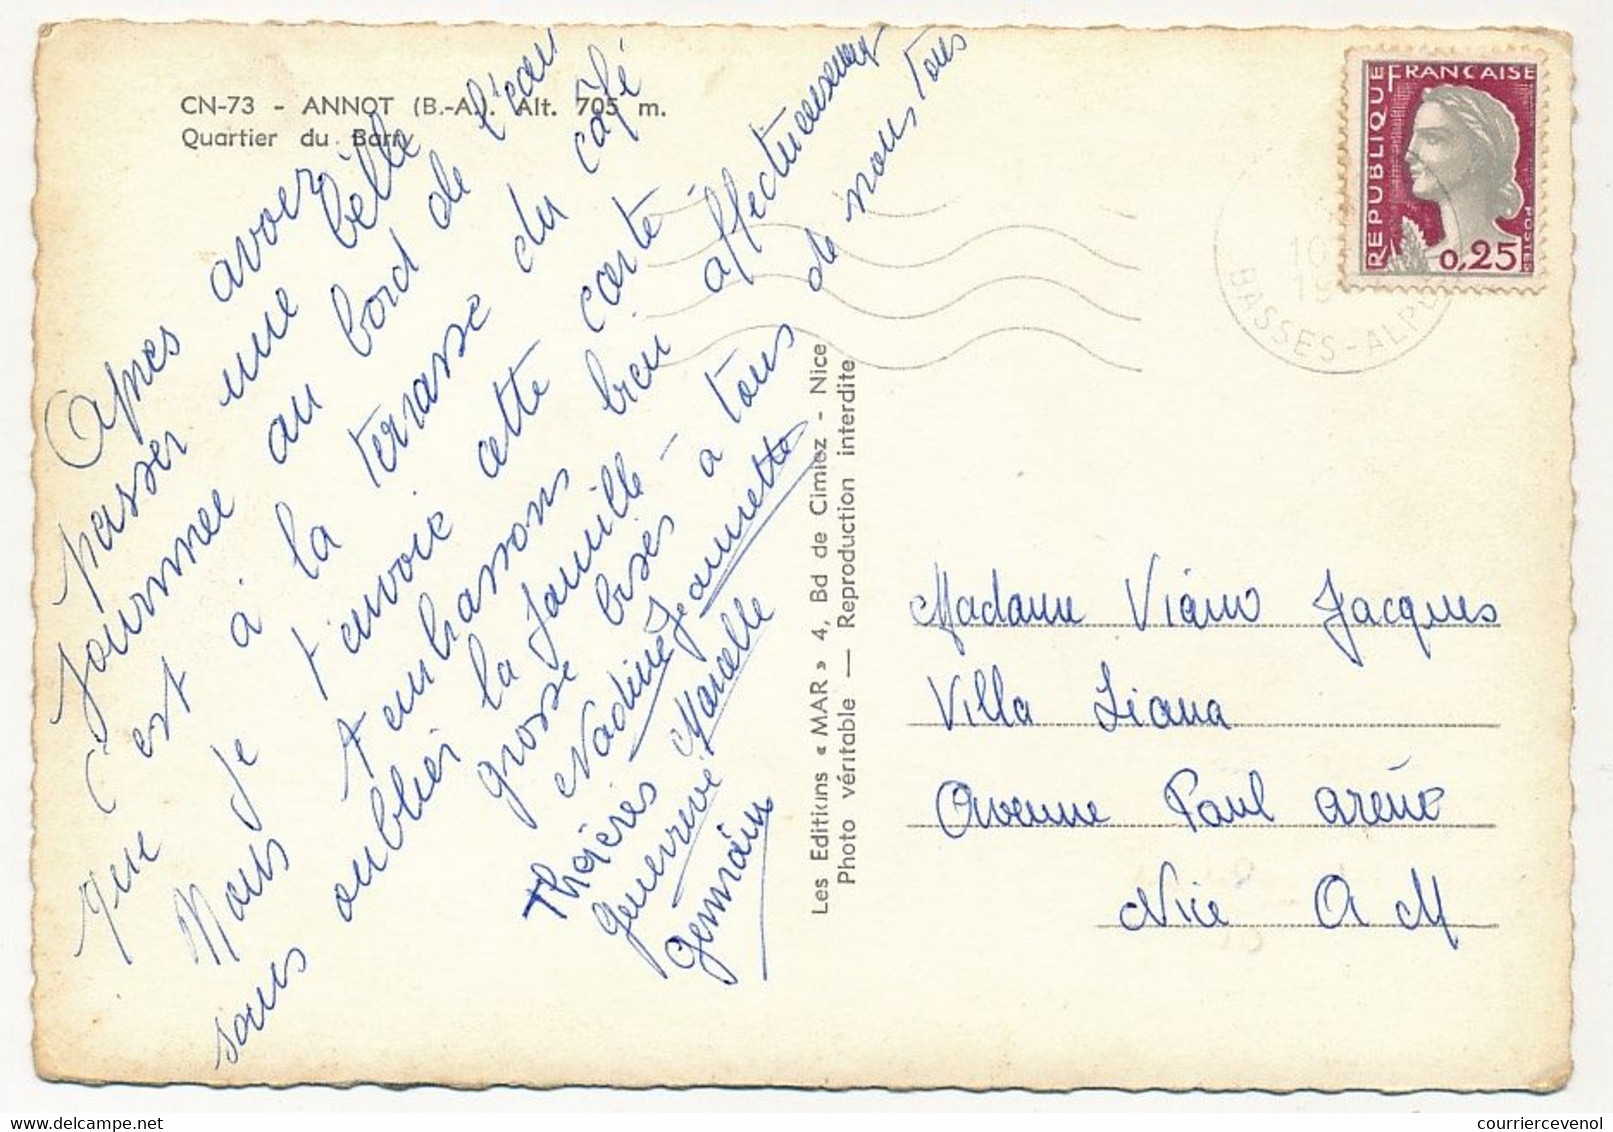 CN-73 - ANNOT (B.-A.). Alt. 705 m.
Quartier du Barry
Apres avoir
passer une belle
journnee au bord de l'eau
C'est à la terrasse du café
que je t'envoie cette carte
Nous t'embrassons bien affectueusement
sans oublier la famille -
grosse bises à tous
de nous tous
Nadine Jeannette
Thérèse Marcelle
Germain
Les Editions « MAR » 4, Bd de Cimiez - Nice
Photo véritable — Reproduction interdite
REPUBLIQUE
FRANCAISE
POSTES
0,25
10
19
BASSES-ALPES
Madame Viano Jacques
Villa Liana
Avenue Paul arène
Nice A M
www.courriercevenol.com